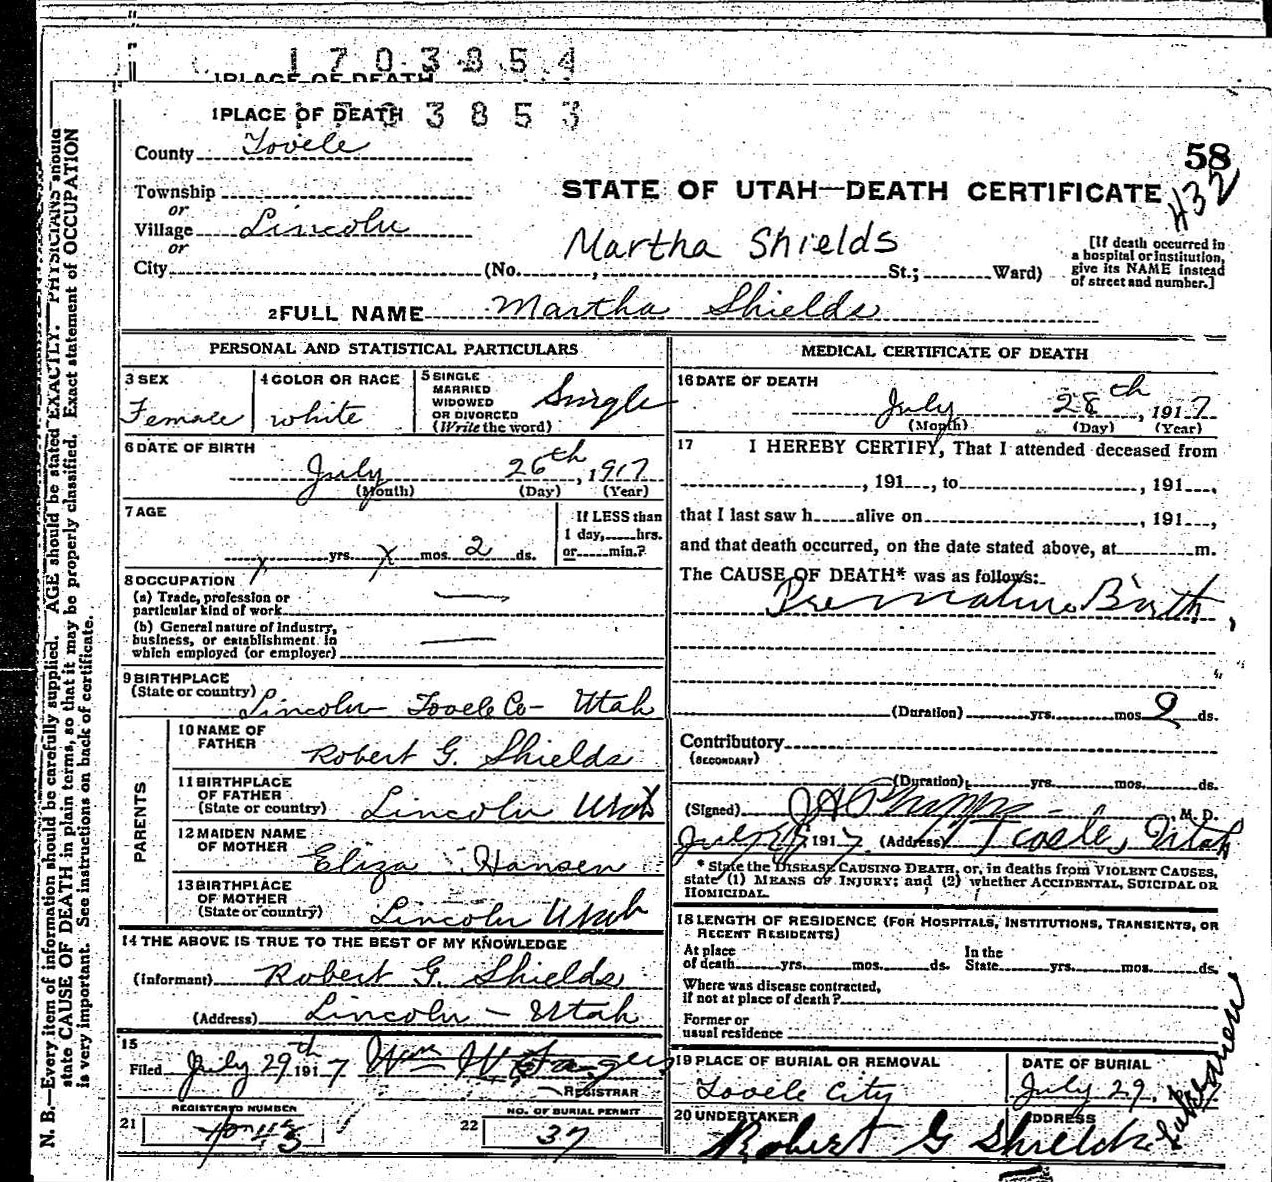 1 7 0 3 8 5 4
1 PLACE OF DEATH
1 PLACE OF DEATH 3 8 5 3
County Tooele
58
Township
STATE OF UTAH—DEATH CERTIFICATE
432
or
Village Lincoln
or
Martha Shields
[If death occurred in
a hospital or institution,
give its NAME instead
of street and number.]
City (No. , St.; Ward)
2 FULL NAME Martha Shields
PERSONAL AND STATISTICAL PARTICULARS
3 SEX
Female
4 COLOR OR RACE
white
5 SINGLE
MARRIED
WIDOWED
OR DIVORCED
(Write the word)
Single
6 DATE OF BIRTH
July 26th, 1917
(Month) (Day) (Year)
7 AGE
x yrs. x mos. 2 ds.
If LESS than
1 day, hrs.
or min.?
8 OCCUPATION
(a) Trade, profession or
particular kind of work
(b) General nature of industry,
business, or establishment in
which employed (or employer)
9 BIRTHPLACE
(State or country) Lincoln Tooele Co - Utah
PARENTS
10 NAME OF
FATHER
Robert G. Shields
11 BIRTHPLACE
OF FATHER
(State or country) Lincoln Utah
12 MAIDEN NAME
OF MOTHER
Eliza Hansen
13 BIRTHPLACE
OF MOTHER
(State or country) Lincoln Utah
14 THE ABOVE IS TRUE TO THE BEST OF MY KNOWLEDGE
(Informant) Robert G. Shields
(Address) Lincoln - Utah
15
Filed July 29th 1917 Wm W
REGISTRAR
21
REGISTERED NUMBER
22
NO. OF BURIAL PERMIT
37
MEDICAL CERTIFICATE OF DEATH
16 DATE OF DEATH
July 28th, 1917
(Month) (Day) (Year)
17 I HEREBY CERTIFY, That I attended deceased from
, 191 , to , 191 ,
that I last saw h alive on , 191 ,
and that death occurred, on the date stated above, at m.
The CAUSE OF DEATH* was as follows:
Premature Birth,
(Duration) yrs. mos. 2 ds.
Contributory
(SECONDARY)
(Duration) yrs. mos. ds.
(Signed) M. D.
July 1917 (Address) Tooele, Utah
* State the DISEASE CAUSING DEATH, or, in deaths from VIOLENT CAUSES,
state (1) MEANS OF INJURY; and (2) whether ACCIDENTAL, SUICIDAL OR
HOMICIDAL.
18 LENGTH OF RESIDENCE (FOR HOSPITALS, INSTITUTIONS, TRANSIENTS, OR
RECENT RESIDENTS)
At place
of death yrs. mos. ds.
In the
State yrs. mos. ds.
Where was disease contracted,
if not at place of death?
Former or
usual residence
19 PLACE OF BURIAL OR REMOVAL
Tooele City
DATE OF BURIAL
July 29, 17
20 UNDERTAKER
Robert G Shields
ADDRESS
N. B.—Every item of information should be carefully supplied. AGE should be stated EXACTLY. PHYSICIANS should
state CAUSE OF DEATH in plain terms, so that it may be properly classified. Exact statement of OCCUPATION
is very important. See instructions on back of certificate.